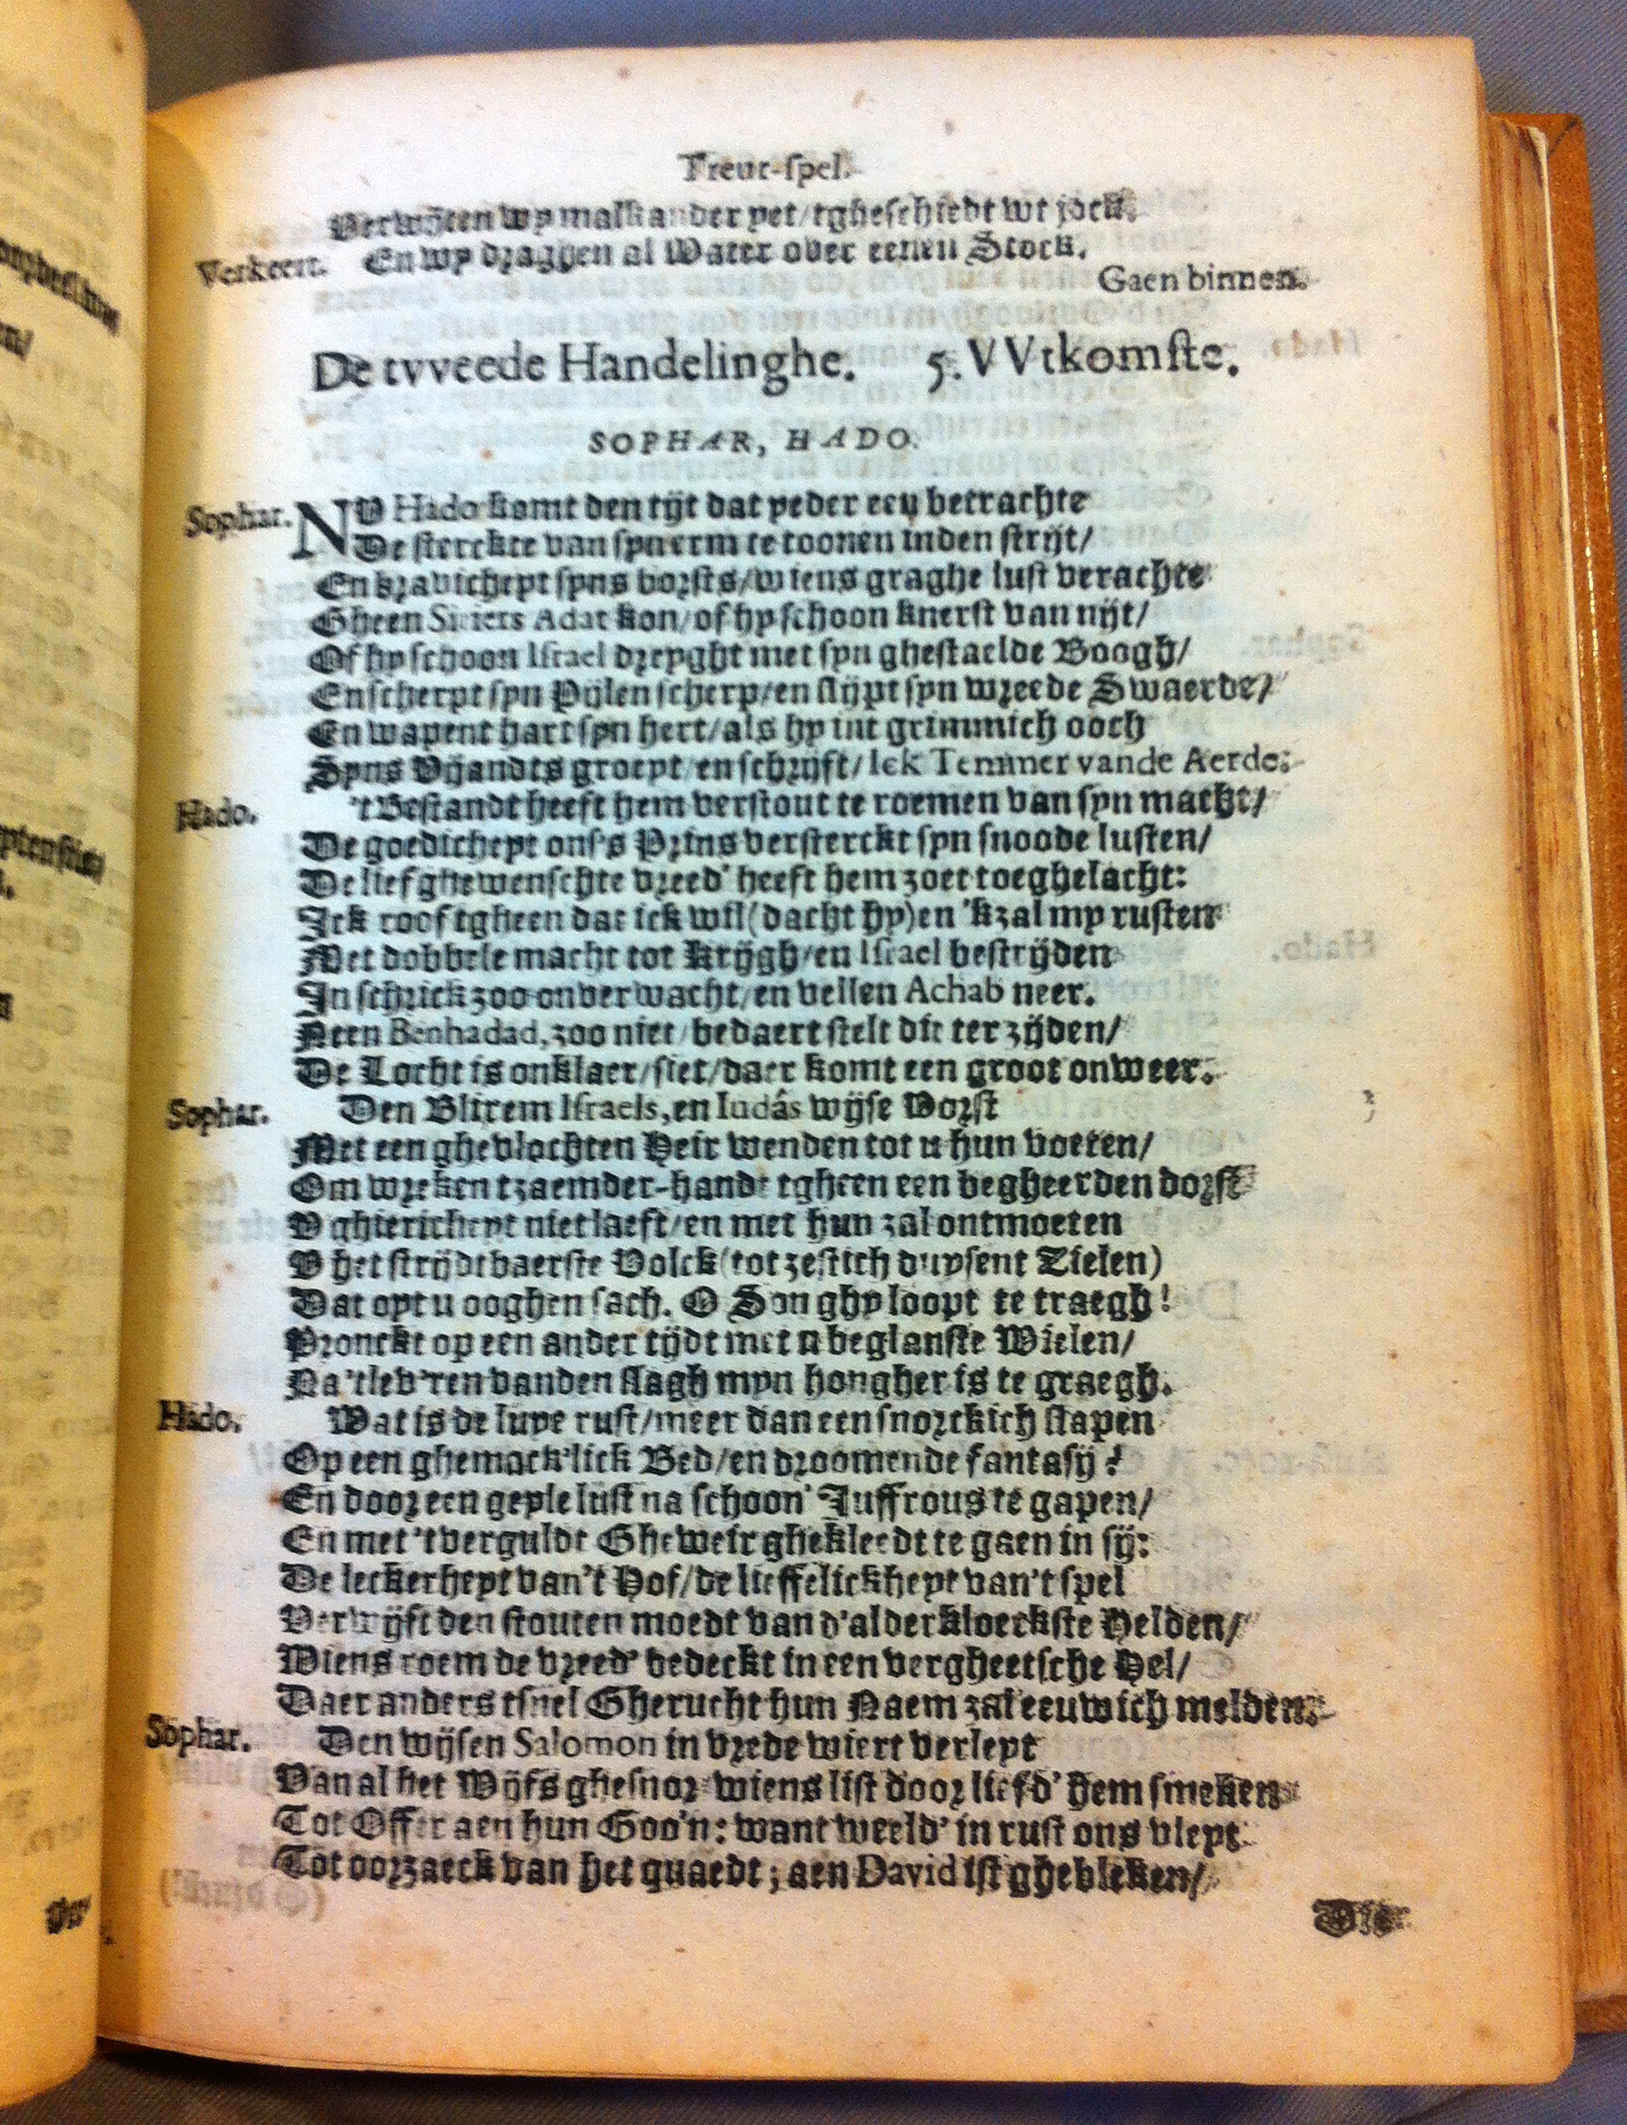 Treur-spel.
Verwijten wy malkander yet/tgheschiedt wt jock,
Verkeert. En wy draghen al Water over eenen Stock.
Gaen binnen.
De tvveede Handelinghe. 5. VVtkomste.
SOPHAR, HADO.
Sophar. NV Hado komt den tijt dat yeder een betrachte
De sterckte van syn erm te toonen inden strijt/
En kravicheyt syns borsts/wiens graghe lust verachte
Gheen Siriers Adat kon/of hy schoon knerst van nijt/
Of hy schoon Israel dreyght met syn ghestaelde Boogh/
En scherpt syn Pijlen scherp/en slijpt syn wreede Swaerde/
En wapent hart syn hert/als hy int grimmich ooch
Syns Vijandts groept en schrijft/Ick Temmer vande Aerde:
Hado. 't Bestandt heeft hem verstout te roemen van syn macht/
De goedicheyt ons's Prins versterckt syn snoode lusten/
De lief ghewenschte vreed' heeft hem zoet toeghelacht:
Ick roof tgheen dat ick wil (dacht hy) en 'k zal my rusten
Met dobbele macht tot Krijgh/en Israel bestrijden
In schrick zoo onverwacht/en vellen Achab neer.
Neen Benhadad, zoo niet/bedaert stelt dit ter zijden/
De Locht is onklaer/siet/daer komt een groot onweer.
Sophar. Den Blixem Israels, en Iudás wijse Vorst
Met een ghevlochten Heir wenden tot u hun voeten/
Om wreken tzaemder-handt tgheen een begheerden dorst
V ghiericheyt niet laest/en met hun zal ontmoeten
V het strijdtbaerste Volck (tot zestich duysent Zielen)
Dat oyt u ooghen sach. O Son ghy loopt te traegh!
Pronckt op een ander tijdt met u beglanste Wielen/
Na 'tlev'ren vanden slagh myn hongher is te graegh.
Hado. Wat is de luye rust/meer dan een snorckich slapen
Op een ghemack'lick Bed/en droomende fantasij?
En door een geyle lust na schoon' Juffrous te gapen/
En met 't verguldt Gheweir ghekleedt te gaen in sij:
De leckerheyt van't Hof/de lieffelickheyt van't spel
Verwijft den stouten moedt van d'alderkloeckste Helden/
Wiens roem de vreed' bedeckt in een vergheetsche Hel/
Daer anders tsnel Gherucht hun Naem zal eeuwich melden.
Sophar. Den wijsen Salomon in vrede wiert verleyt
Van al het Wijfs ghesnor wiens list door liefd' hem smeken
Tot Offer aen hun Goo'n: want weeld' in rust ons vleyt
Tot oorzaeck van het quaedt; aen David ist ghebleken/
Die